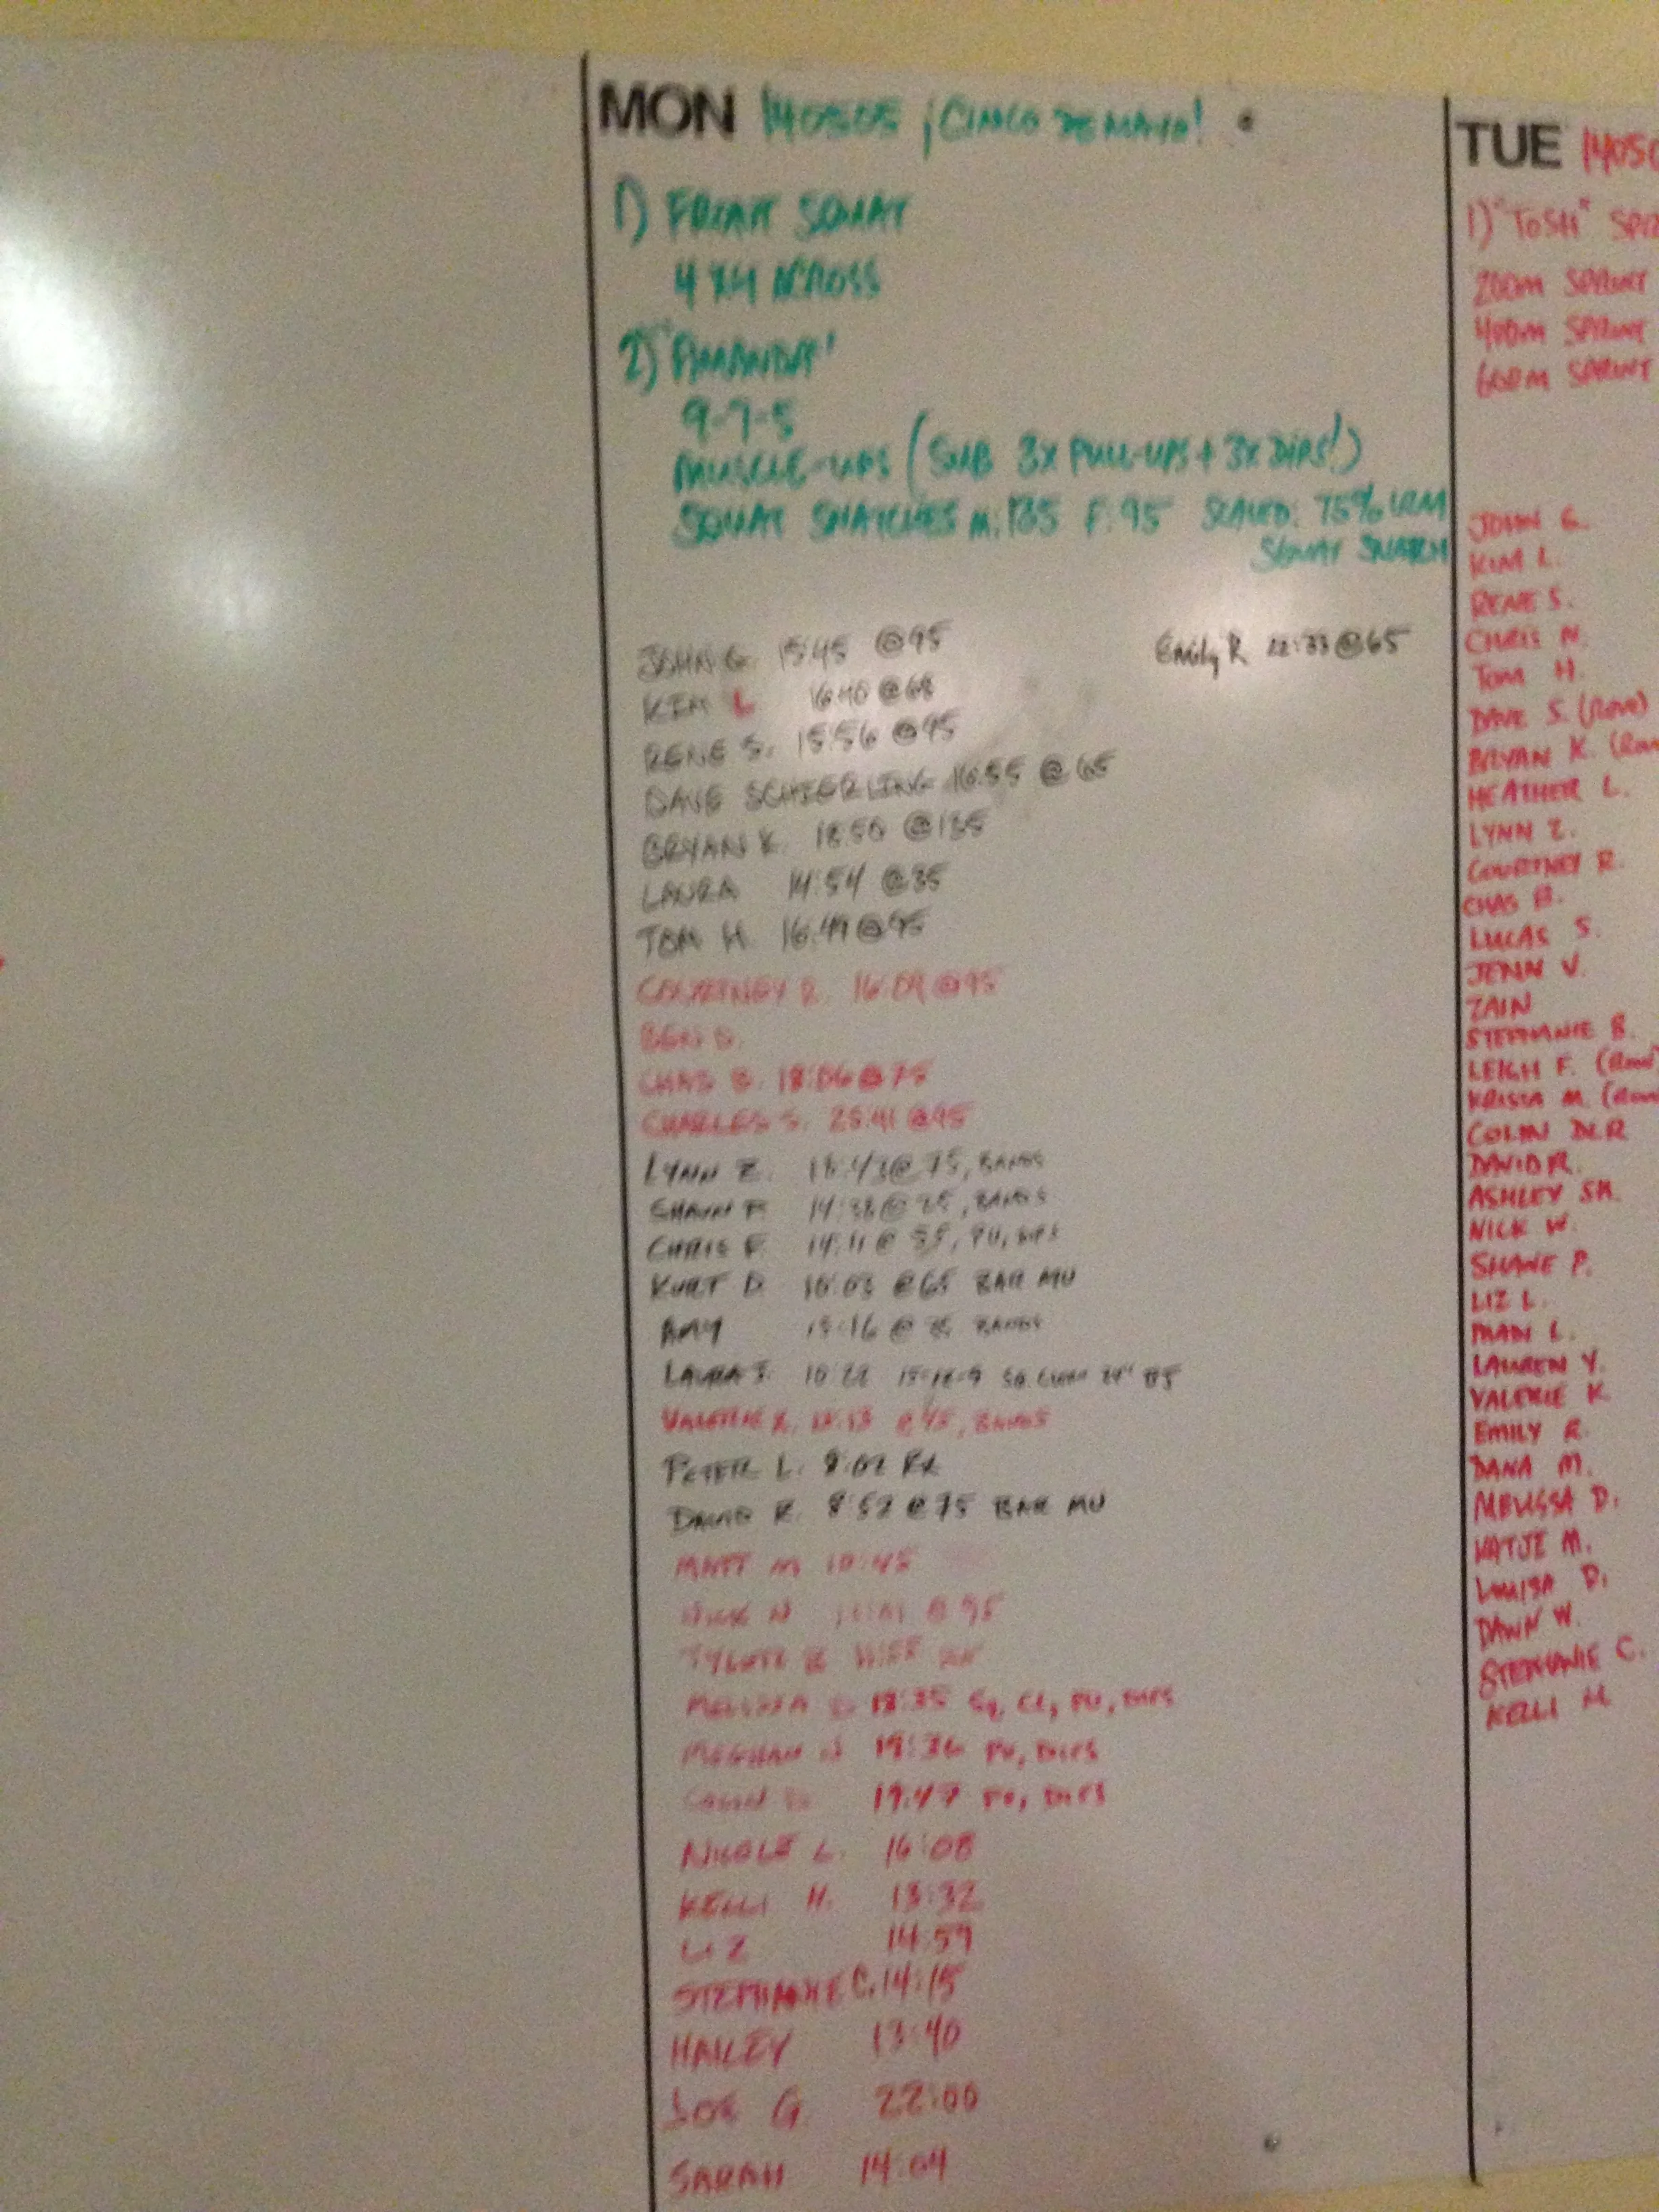 MON 140505 ¡CINCO DE MAYO!
1) FRONT SQUAT
4X4 ACROSS
2) "AMANDA"
9-7-5
MUSCLE-UPS (SUB 3X PULL-UPS + 3X DIPS!)
SQUAT SNATCHES M:135 F:95 SCALED: 75% 1RM
SQUAT SNATCH
JOHN G. 15:45 @95
Emily R 22:33@65
KIM L 16:40 @68
RENE S. 15:56 @95
DAVE SCHIERLING 16:55 @ 65
BRYAN K. 18:50 @135
LAURA 14:54 @35
TOM H. 16:49@95
COURTNEY R. 16:09@95
BEN D.
CHAS B. 18:06@75
CHARLES S. 25:41@95
LYNN Z. 18:43@75, BANDS
SHAWN P. 14:38@ BANDS
CHRIS F. 14:11@ 55, PU, DIPS
KURT D. 10:03 @65 BAR MU
AMY 15:16 @ BANDS
LAURA 10:22 15-12-9
VALERIE K. @45, BANDS
PETER L. 8:02 RX
DAVID R. 8:52 @75 BAR MU
MATT M 10:45
NICK @ 95
TYLER
MELISSA D 18:35 SQ, CL, PU, DIPS
MEGHAN 19:36 PU, DIPS
19:47 PU, DIPS
NICOLE L. 16:08
KELLI H. 13:32
LIZ 14:59
STEPHANIE C. 14:15
HAILEY 13:40
JOE G 22:00
SARAH 14:04
TUE 1405
1) "TOSH" SPR
200M SPRINT
400M SPRINT
600M SPRINT
JOHN G.
KIM L.
RENE S.
CHRIS N.
TOM H.
DAVE S. (ROW)
BRYAN K. (ROW
HEATHER L.
LYNN Z.
COURTNEY R.
CHAS B.
LUCAS S.
JENN V.
ZAIN
STEPHANIE B.
LEIGH F. (ROW)
KRISTA M. (ROW
COLIN
DAVID R.
ASHLEY SM.
NICK W.
SHANE P.
LIZ L.
IMAN L.
LAUREN Y.
VALERIE K.
EMILY R.
DANA M.
MELISSA D.
KATJE M.
LOUISA D.
DAWN W.
STEPHANIE C.
KELLI H